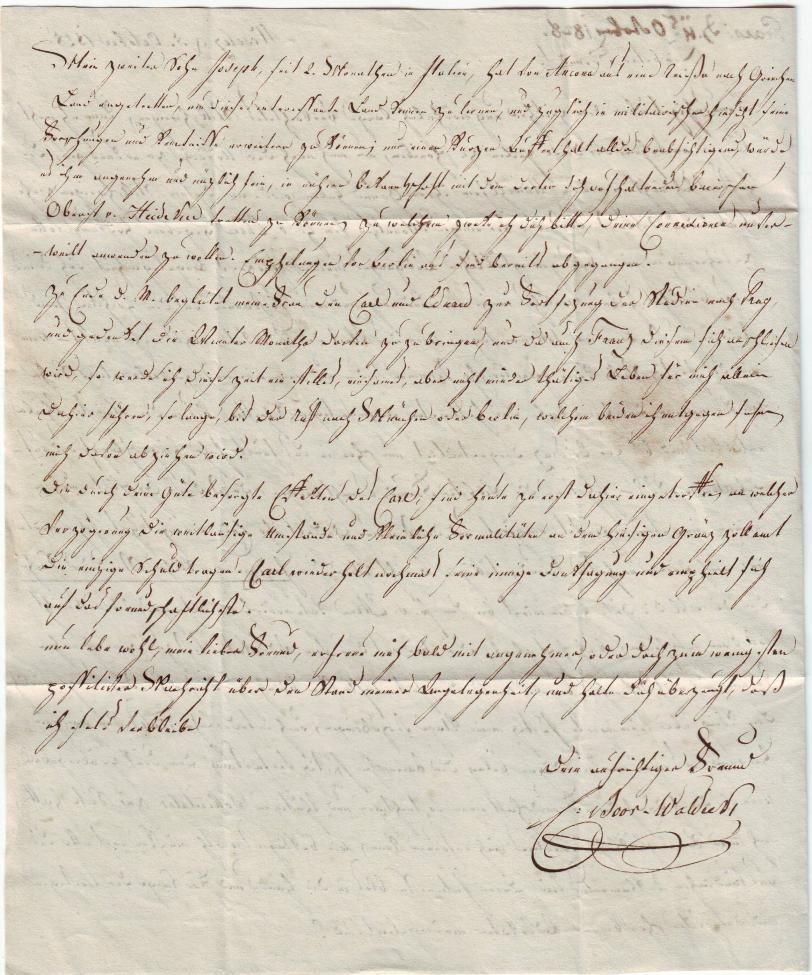 Mein zweiter Sohn Joseph, seit 2. Monathen in Italien, hat von Ancona aus eine Reise nach Griechen
Land angetretten, um dieses interessante Land kennen zu lernen, und zugleich in militairischer Hinsicht seine
Erfahrungen und Kenntniße erweitern zu können; nur einen kurzen Auffenthalt allda beabsichtigend, würde
es ihm angenehm und nüzlich sein, in nähere Bekantschaft mit dem dorten sich aufhaltenden baierischen
Oberst v. Heidecker tretten zu können, zu welchem zweke ich dich bitte, deine Connexionen unter-
-weilt anwenden zu wollen. Empfelungen von Berlin aus sind bereits abgegangen.
Zu Ende d. M. begleitet meine Frau den Carl und Eduard zur Fortsezung der Studien nach Prag,
und gedenket die Winter Monathe dorten zu zubringen, und da auch Franz diesem sich anschließen
wird, so werde ich diese Zeit ein stilles, einsames, aber nicht minder thätiges Leben für mich allein
dahier führen, so lange, bis der Ruf nach München oder Berlin, welchem beiden ich entgegen sehe,
mich davon abziehen wird.
Die durch deine Güte besorgte Effekten des Carl, sind heute zu erst dahier eingetroffen, an welcher
Verzögerung die weitläufige Umstände und kleinliche Formalitäten an dem hiesigen Gränz zollamt
die einzige Schuld tragen. Carl wiederholt nochmals seine innige Danksagung und empfielt sich
auf das freundschaftlichste.
Nun lebe wohl, mein lieber Freund, erfreue mich bald mit angenehmer, oder doch zum wenigsten
positiver Nachricht über den Stand meiner Angelegenheit, und halte dich überzeugt, daß
ich stets verbleibe
Dein aufrichtiger Freund
C: Boos-Waldeck